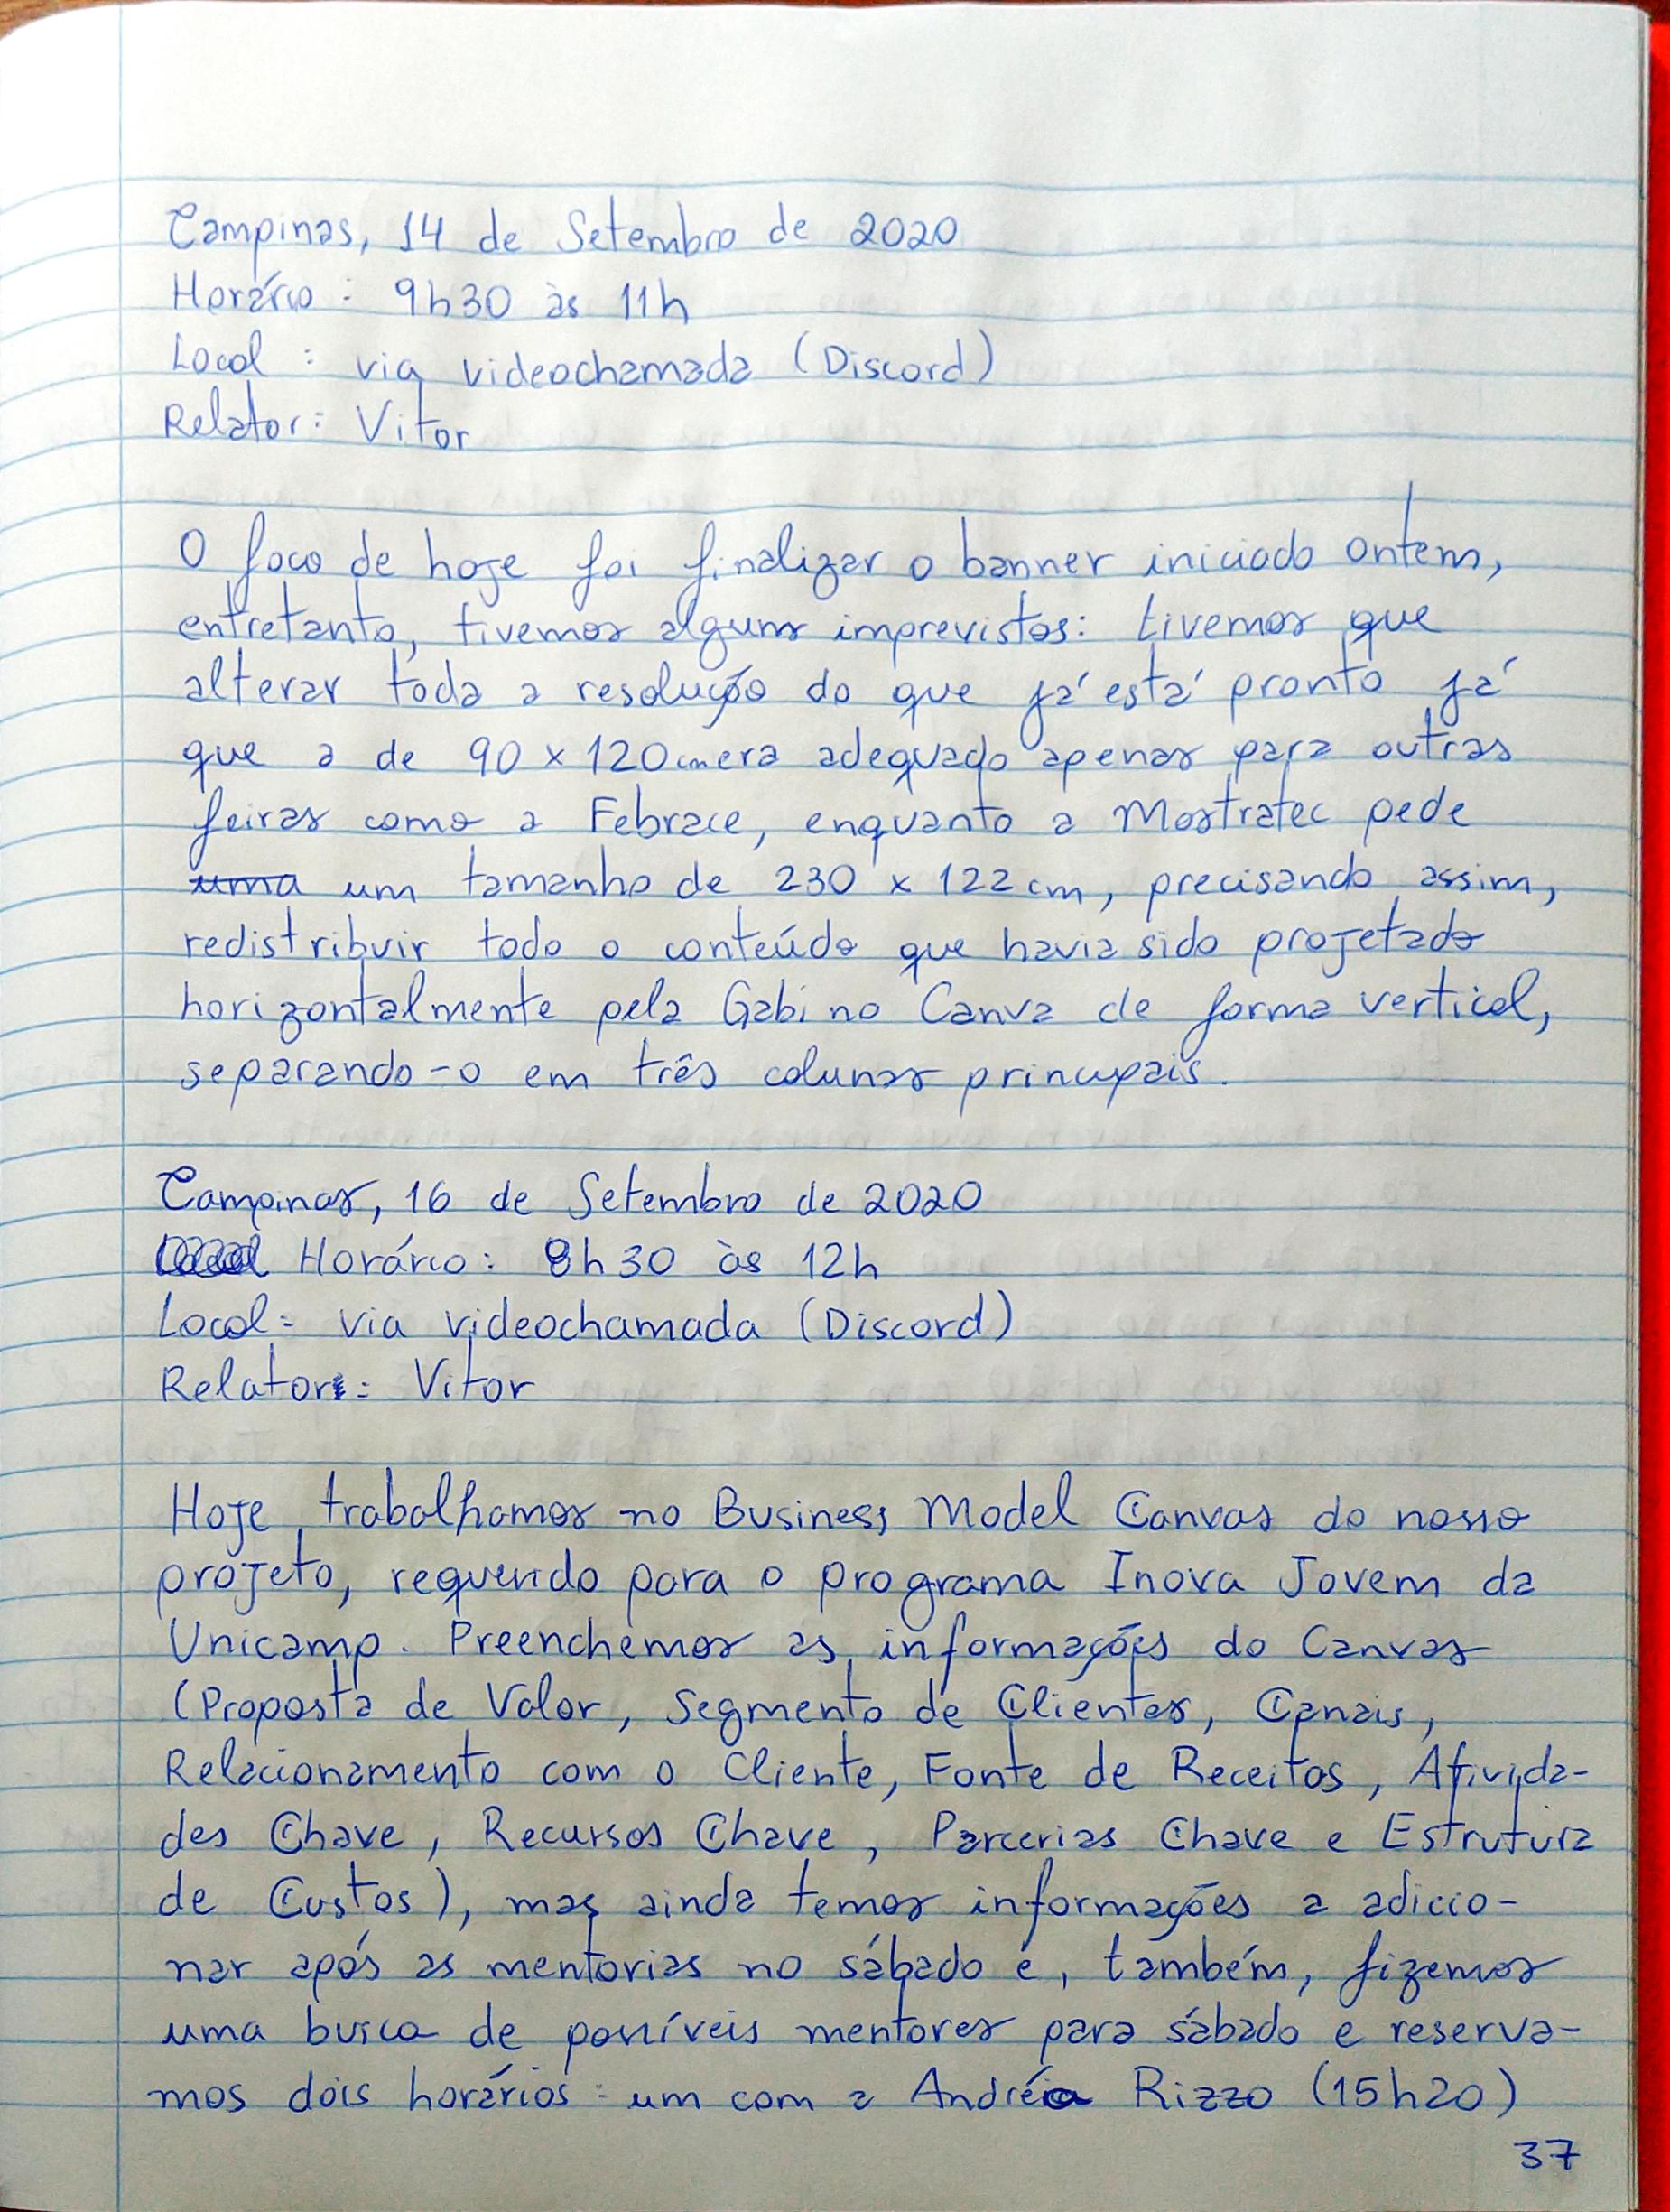 Campinas, 14 de Setembro de 2020
Horário: 9h30 às 11h
Local: via videochamada (Discord)
Relator: Vitor
O foco de hoje foi finalizar o banner iniciado ontem,
entretanto, tivemos alguns imprevistos: tivemos que
alterar toda a resolução do que já está pronto já
que a de 90 x 120cm era adequado apenas para outras
feiras como a Febrace, enquanto a Mostratec pede
uma um tamanho de 230 x 122 cm, precisando, assim,
redistribuir todo o conteúdo que havia sido projetado
horizontalmente pela Gabi no Canva de forma vertical,
separando-o em três colunas principais.
Campinas, 16 de Setembro de 2020
Horário: 8h30 às 12h
Local: via videochamada (Discord)
Relator: Vitor
Hoje, trabalhamos no Business Model Canvas do nosso
projeto, requerido para o programa Inova Jovem da
Unicamp. Preenchemos as informações do Canvas
(Proposta de Valor, Segmento de Clientes, Canais,
Relacionamento com o Cliente, Fonte de Receitas, Ativida-
des Chave, Recursos Chave, Parcerias Chave e Estrutura
de Custos), mas ainda temos informações a adicio-
nar após as mentorias no sábado e, também, fizemos
uma busca de possíveis mentores para sábado e reserva-
mos dois horários: um com a Andréia Rizzo (15h20)
37